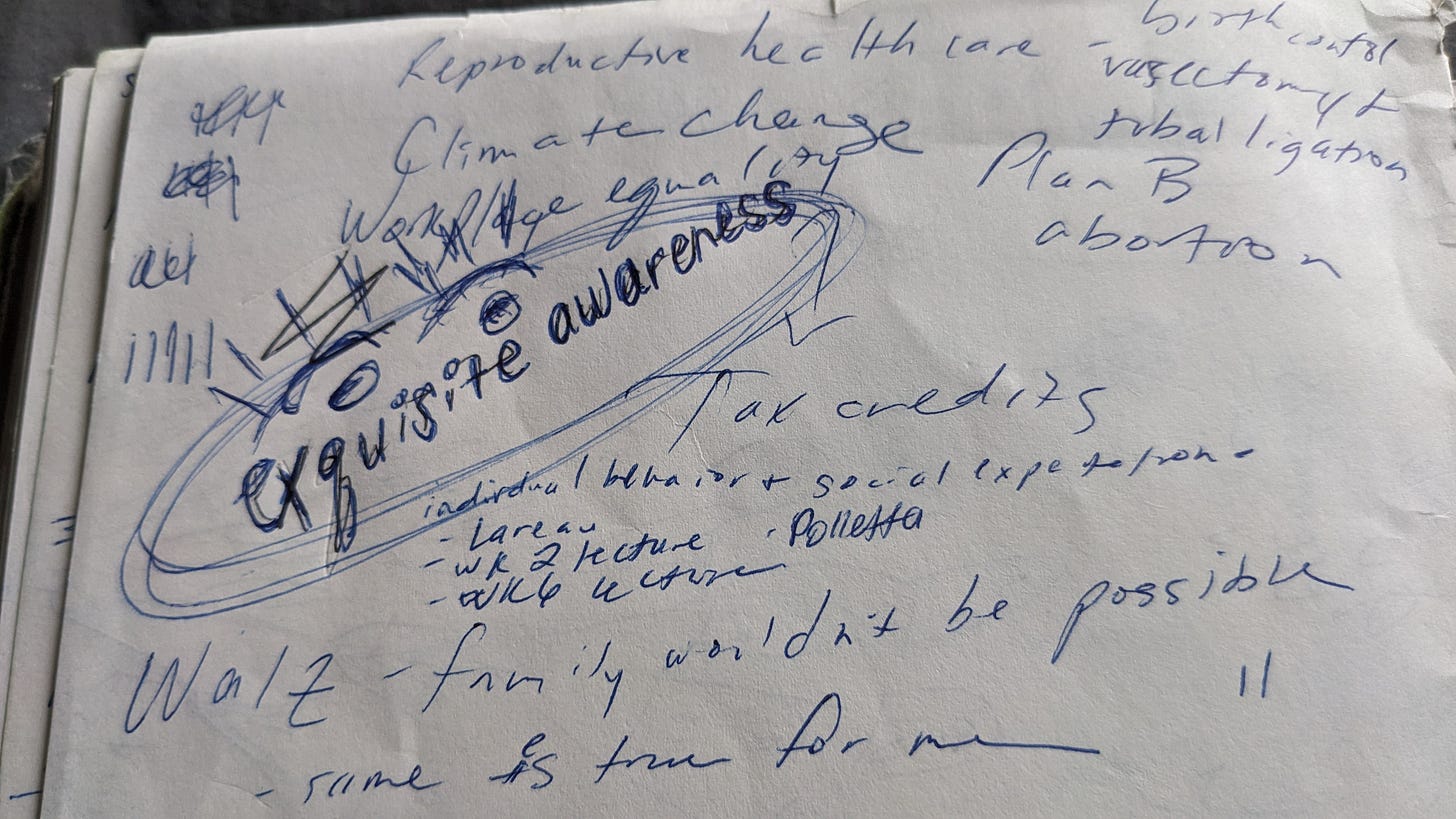 Reproductive health care - birth control
vasectomy +
tubal ligation
Climate change
Plan B
Workplace equality
abortion
exquisite awareness
Tax credits
individual behavior + social expectation -
- Lareau
- wk 2 lecture · Polletta
- wk 6 lecture
Walz - family wouldn't be possible
- same is true for me